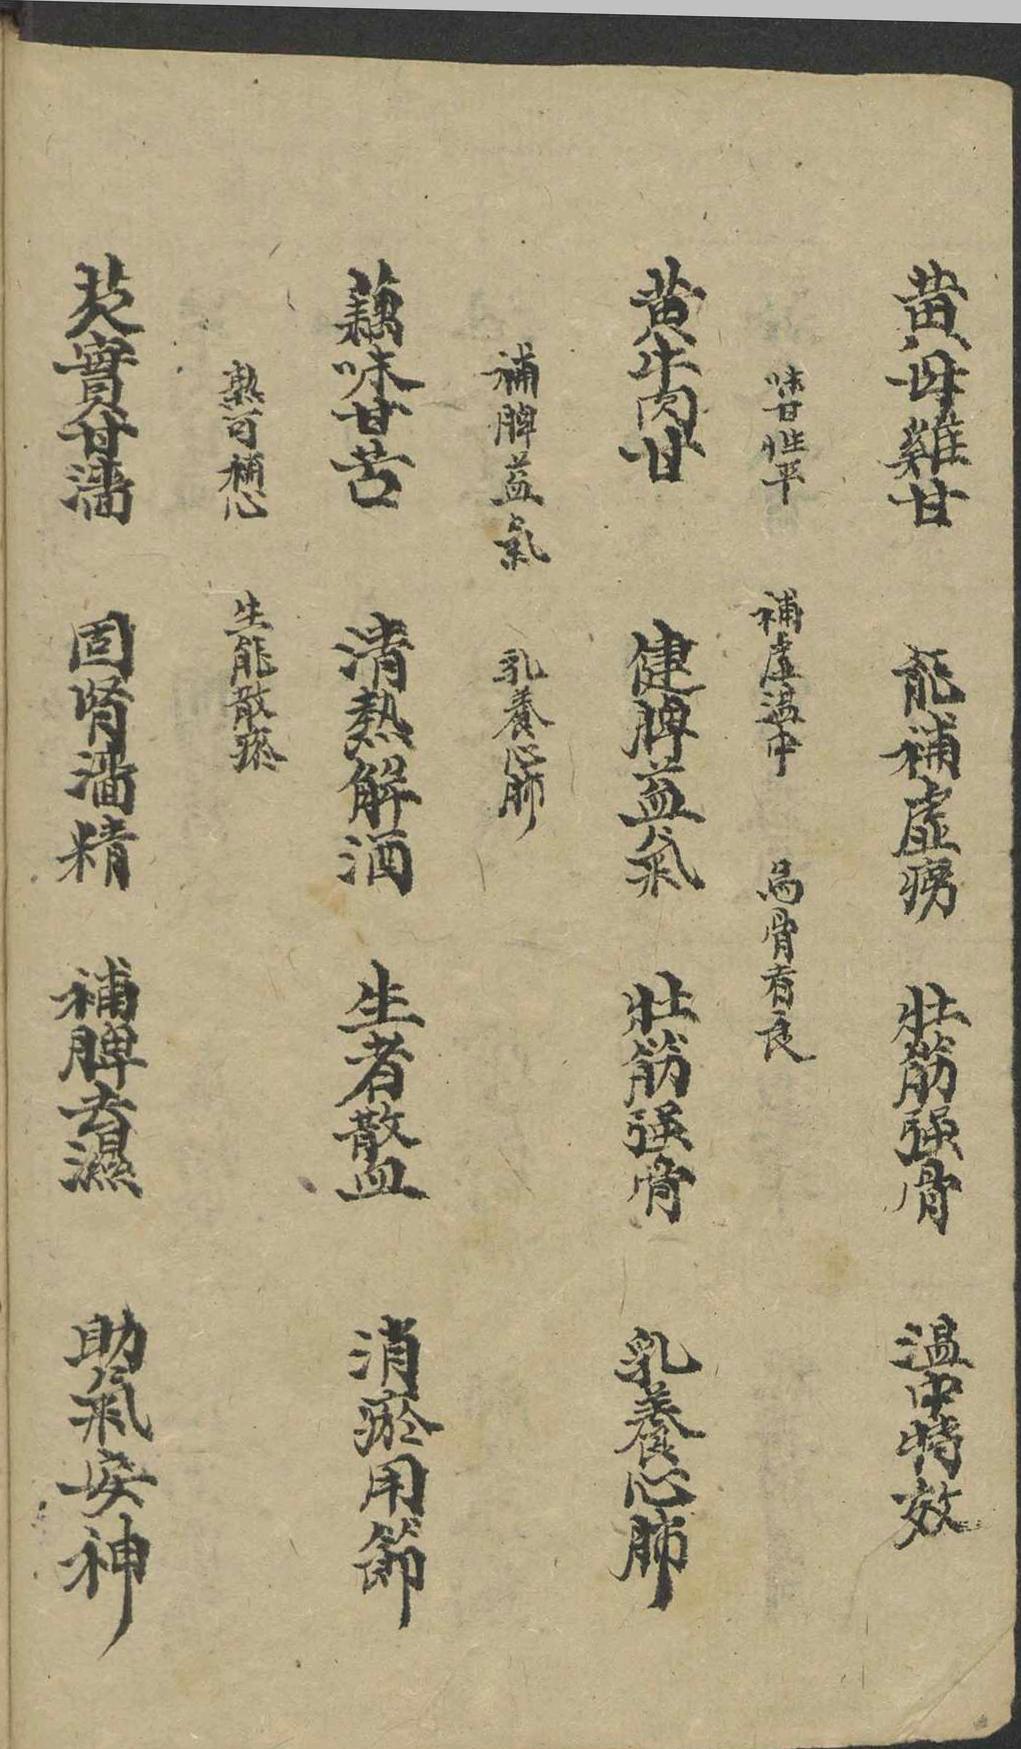 黄母雞甘 能補虛癆 壯筋强骨 溫中特效
味甘性平 補虛溫中 烏骨者良
黄牛肉甘 健脾益氣 壯筋强骨 乳養心肺
補脾益氣 乳養心肺
藕味甘苦 清熱解酒 生者散血 消瘀用節
熟可補心 生能散瘀
芡實甘濇 固腎濇精 補脾去濕 助氣安神